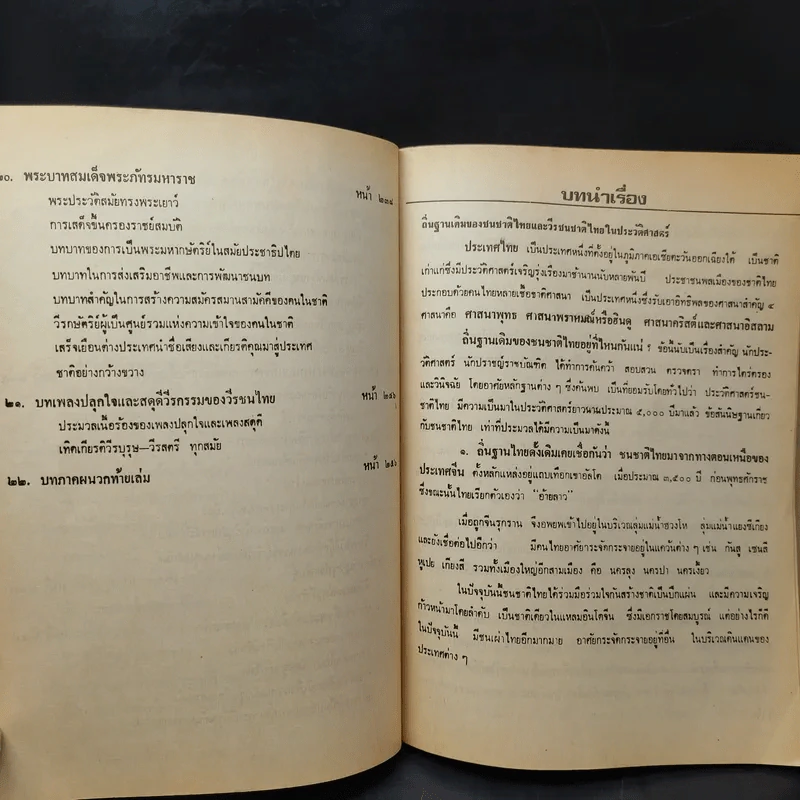 ๒๐. พระบาทสมเด็จพระภัทรมหาราช
หน้า ๒๓๔
พระประวัติสมัยทรงพระเยาว์
การเสด็จขึ้นครองราชย์สมบัติ
บทบาทของการเป็นพระมหากษัตริย์ในสมัยประชาธิปไตย
บทบาทในการส่งเสริมอาชีพและการพัฒนาชนบท
บทบาทสำคัญในการสร้างความสมัครสมานสามัคคีของคนในชาติ
วีรกษัตริย์ผู้เป็นศูนย์รวมแห่งความเข้าใจของคนในชาติ
เสร็จเยือนต่างประเทศนำชื่อเสียงและเกียรติคุณมาสู่ประเทศ
ชาติอย่างกว้างขวาง
๒๑. บทเพลงปลุกใจและสดุดีวีรกรรมของวีรชนไทย
หน้า ๒๔๖
ประมวลเนื้อร้องของเพลงปลุกใจและเพลงสดุดี
เทิดเกียรติวีรบุรุษ—วีรสตรี ทุกสมัย
๒๒. บทภาคผนวกท้ายเล่ม
หน้า ๒๕๖
บทนำเรื่อง
ถิ่นฐานเดิมของชนชาติไทยและวีรชนชาติไทยในประวัติศาสตร์
ประเทศไทย เป็นประเทศหนึ่งที่ตั้งอยู่ในภูมิภาคเอเซียตะวันออกเฉียงใต้ เป็นชาติ
เก่าแก่ซึ่งมีประวัติศาสตร์เจริญรุ่งเรืองมาช้านานนับหลายพันปี ประชาชนพลเมืองของชาติไทย
ประกอบด้วยคนไทยหลายเชื้อชาติศาสนา เป็นประเทศหนึ่งซึ่งรับเอาอิทธิพลของศาสนาสำคัญ ๔
ศาสนาคือ ศาสนาพุทธ ศาสนาพราหมณ์หรือฮินดู ศาสนาคริสต์และศาสนาอิสลาม
ถิ่นฐานเดิมของชนชาติไทยอยู่ที่ไหนกันแน่ ? ข้อนี้นับเป็นเรื่องสำคัญ นักประ-
วัติศาสตร์ นักปราชญ์ราชบัณฑิต ได้ทำการค้นคว้า สอบสวน ตรวจตรา ทำการไตร่ตรอง
และวินิจฉัย โดยอาศัยหลักฐานต่าง ๆ ซึ่งค้นพบ เป็นที่ยอมรับโดยทั่วไปว่า ประวัติศาสตร์ชน-
ชาติไทย มีความเป็นมาในประวัติศาสตร์ยาวนานประมาณ ๕,๐๐๐ ปีมาแล้ว ข้อสันนิษฐานเกี่ยว
กับชนชาติไทย เท่าที่ประมวลได้มีความเป็นมาดังนี้
๑. ถิ่นฐานไทยดั้งเดิมเคยเชื่อกันว่า ชนชาติไทยมาจากทางตอนเหนือของ
ประเทศจีน ตั้งหลักแหล่งอยู่แถบเทือกเขาอัลไต เมื่อประมาณ ๓,๕๐๐ ปี ก่อนพุทธศักราช
ซึ่งขณะนั้นไทยเรียกตัวเองว่า "อ้ายลาว"
เมื่อถูกจีนรุกราน จึงอพยพเข้าไปอยู่ในบริเวณลุ่มแม่น้ำฮวงโห ลุ่มแม่น้ำแยงซีเกียง
และยังเชื่อต่อไปอีกว่า มีคนไทยอาศัยกระจัดกระจายอยู่ในแคว้นต่าง ๆ เช่น กันสู เซนสี
หูเปย เกียงสี รวมทั้งเมืองใหญ่อีกสามเมือง คือ นครลุง นครปา นครเงี้ยว
ในปัจจุบันนี้ชนชาติไทยได้ร่วมมือร่วมใจกันสร้างชาติเป็นปึกแผ่น และมีความเจริญ
ก้าวหน้ามาโดยลำดับ เป็นชาติเดียวในแหลมอินโดจีน ซึ่งมีเอกราชโดยสมบูรณ์ แต่อย่างไรก็ดี
ในปัจจุบันนี้ มีชนเผ่าไทยอีกมากมาย อาศัยกระจัดกระจายอยู่ที่อื่น ในบริเวณดินแดนของ
ประเทศต่าง ๆ